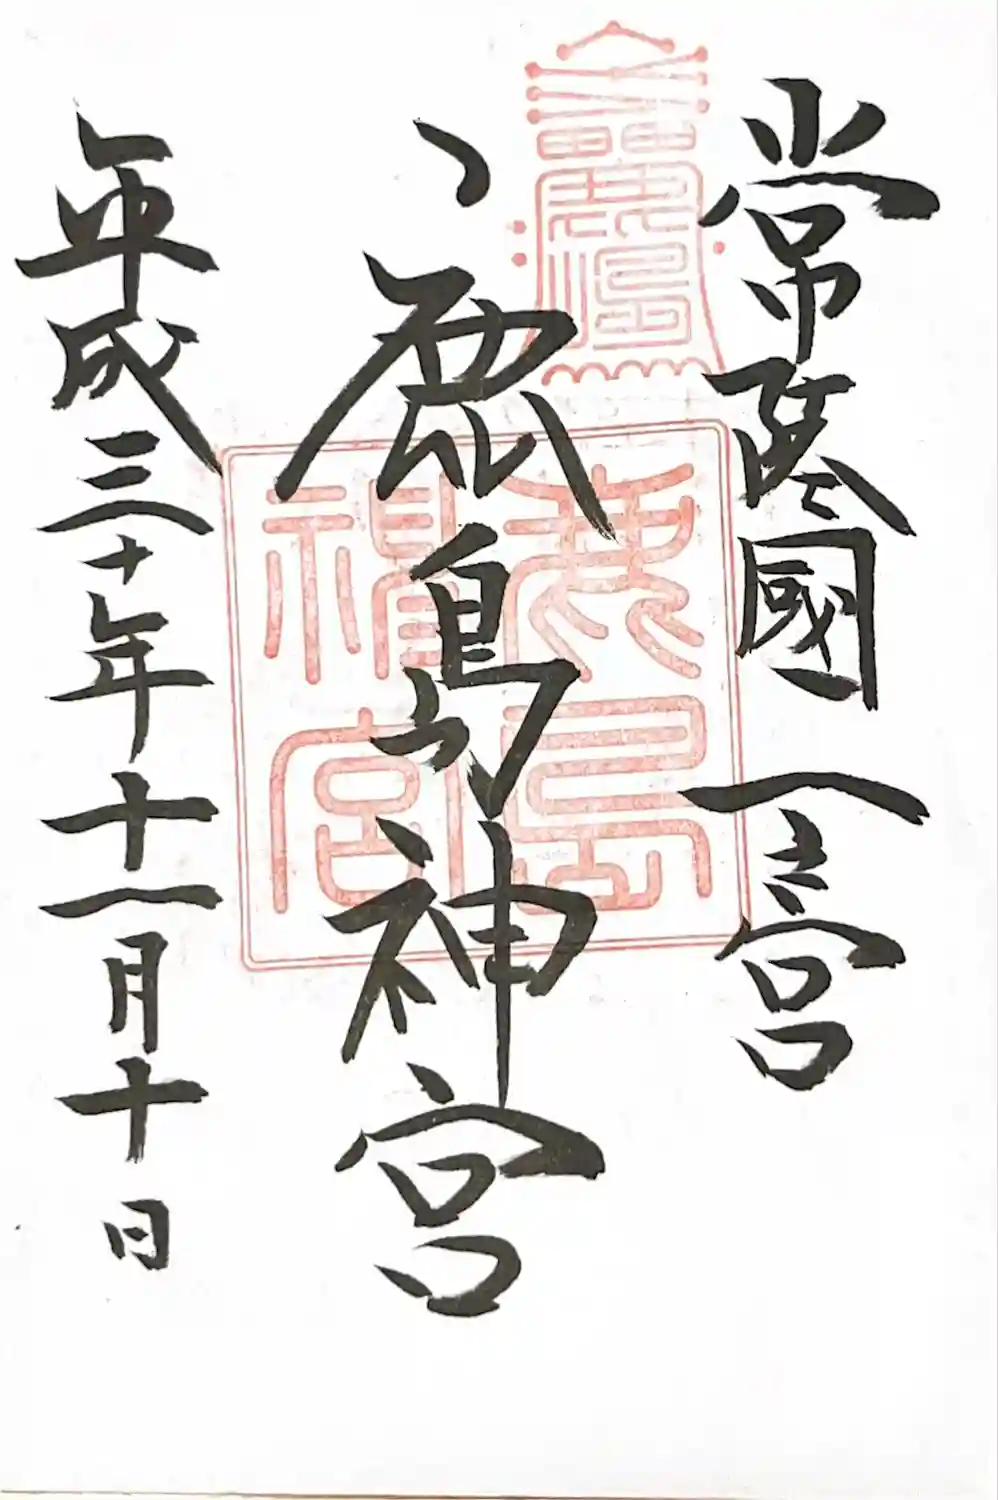 常陸國一之宮
鹿島神宮
平成三十年十一月十日
鹿島神宮